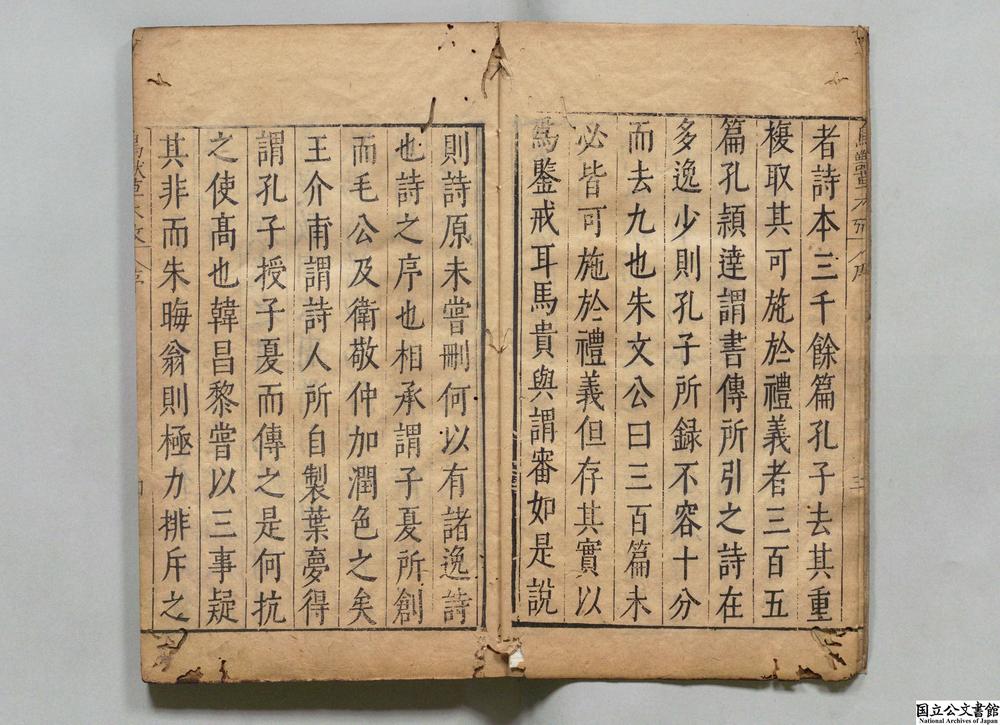 者詩本三千餘篇孔子去其重
複取其可施於禮義者三百五
篇孔穎達謂書傳所引之詩在
多逸少則孔子所録不容十分
而去九也朱文公曰三百篇未
必皆可施於禮義但存其實以
爲鑒戒耳馬貴與謂審如是說
則詩原未嘗刪何以有諸逸詩
也詩之序也相承謂子夏所創
而毛公及衛敬仲加潤色之矣
王介甫謂詩人所自製葉夢得
謂孔子授子夏而傳之是何抗
之使高也韓昌黎嘗以三事疑
其非而朱晦翁則極力排斥之
国立公文書館
National Archives of Japan